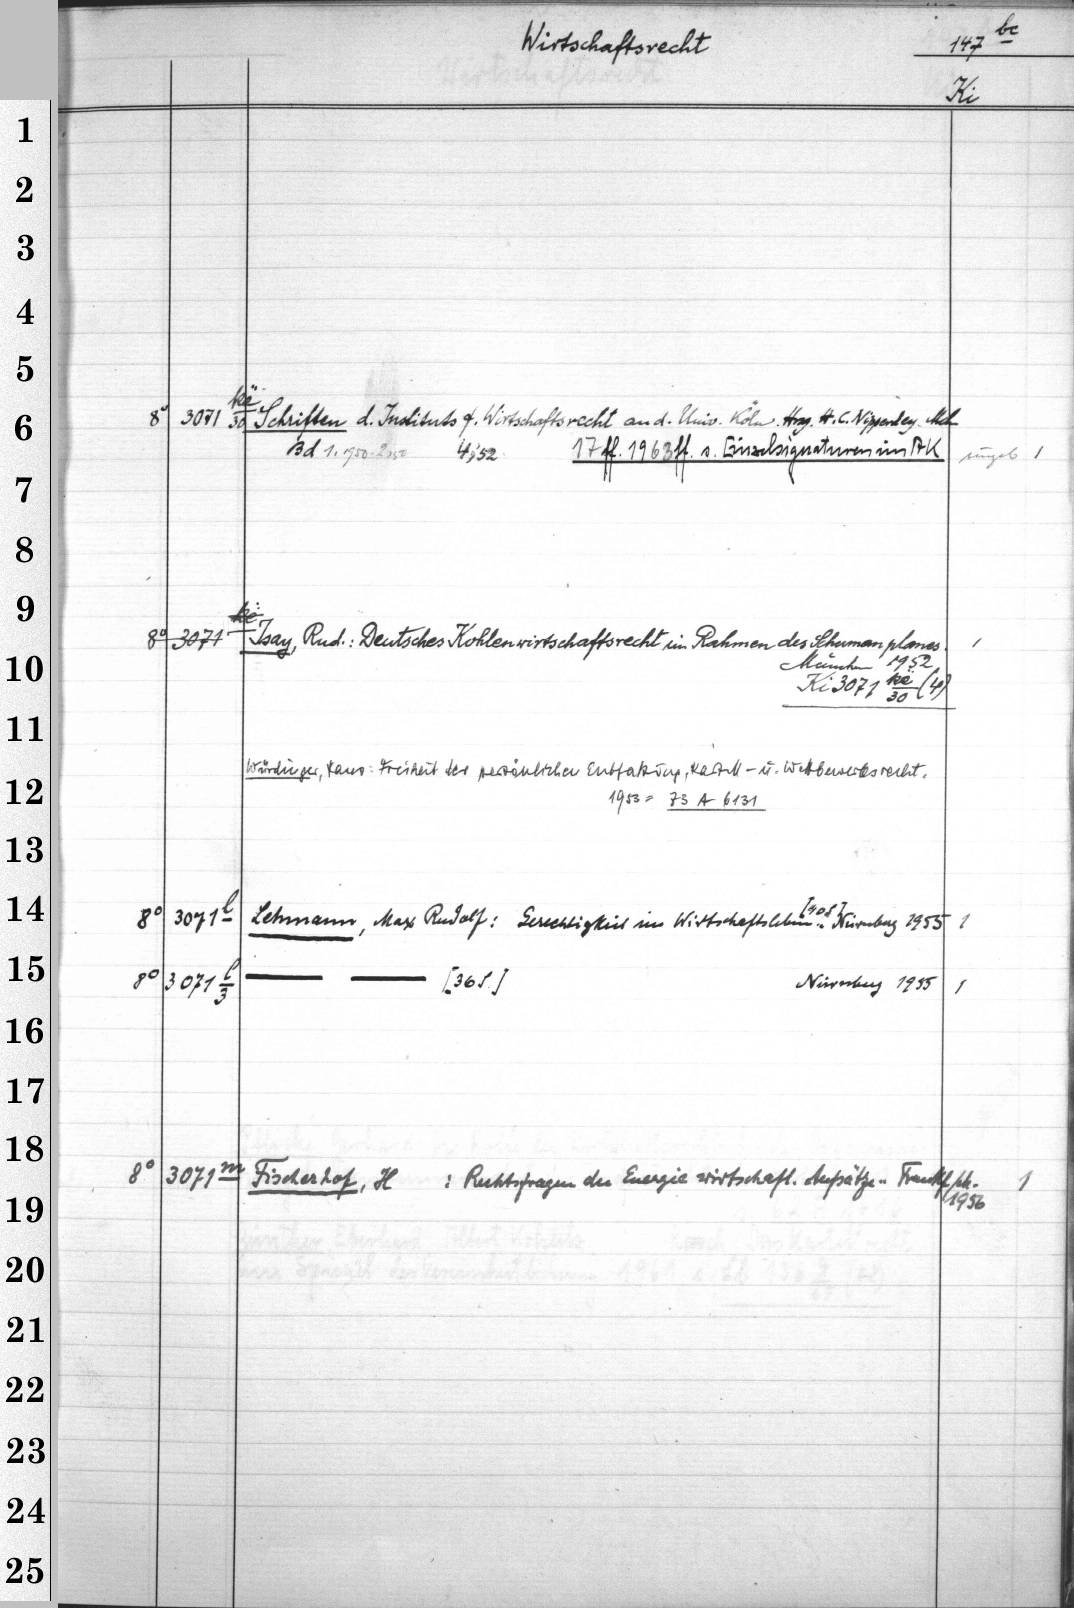 Wirtschaftsrecht 147 bc
Ki
1
2
3
4
5
6
8° 3071 kë/30 Schriften d. Instituts f. Wirtschaftsrecht an d. Univ. Köln. Hrsg. H. C. Nipperdey. Mch
Bd 1. 1950. 2. 4,52 17 ff. 1963 ff. s. Einzelsignaturen im AK 1
7
8
9
8° 3071 kë Isay, Rud.: Deutsches Kohlenwirtschaftsrecht im Rahmen des Schumanplanes. 1
10
München 1952
Ki 3071 kë/30 (4)
11
12
Würdinger, Hans: Freiheit der persönlichen Entfaltung, Kartell- u. Wettbewerbsrecht.
1953 = 73 A 6131
13
14
8° 3071 l Lehmann, Max Rudolf: Gerechtigkeit im Wirtschaftsleben. [40 S.] Nürnberg 1955 1
15
8° 3071 l/3 — — [36 S.] Nürnberg 1955 1
16
17
18
8° 3071 m Fischerhof, H : Rechtsfragen der Energiewirtschaft. Aufsätze.. Frankf. 1
19
1956
20
21
22
23
24
25